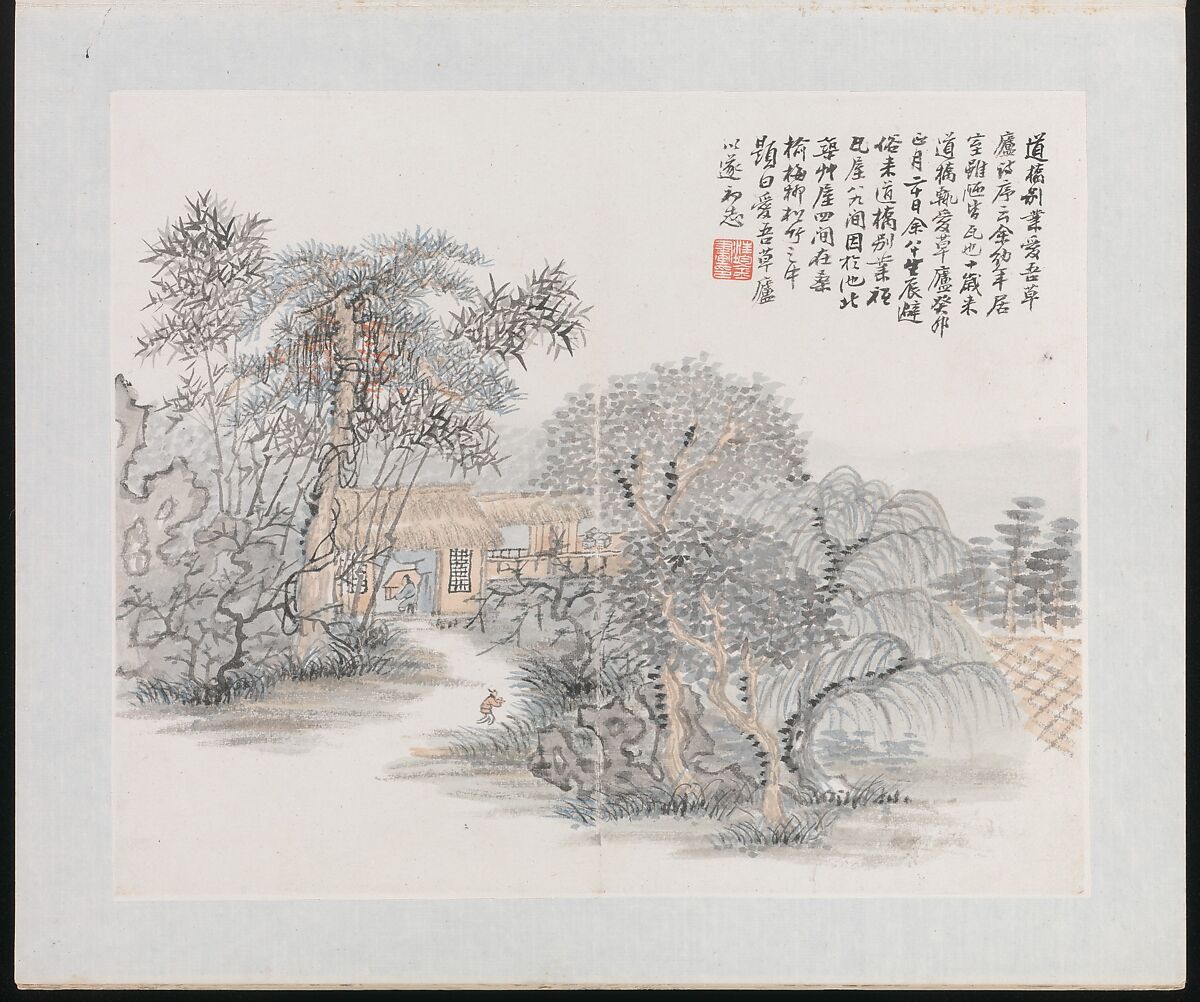 道橋別業愛吾草
廬詩序云余幼年居
室雖陋皆瓦也十歲来
道橋輒愛草廬癸卯
正月二十日余八十生辰避
俗来道橋別業祗
瓦屋八九間因於池北
築艸屋四間在桑
榆梅柳松竹之中
題曰愛吾草廬
以遂初志